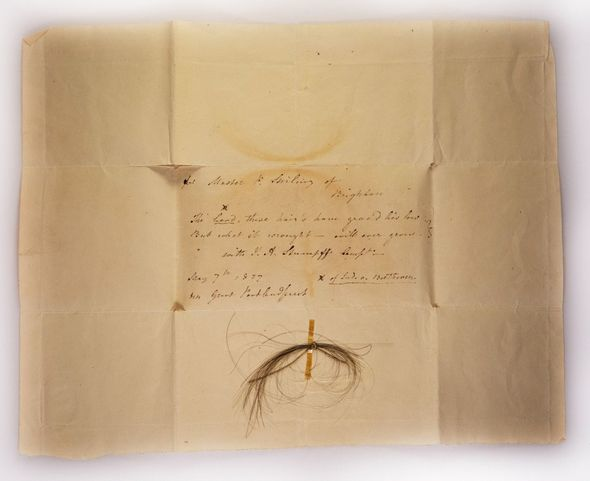 for Master P. Stirling of
Brighton
x
The Head, these hair's have grac'd lies low
But what it wrought – will ever grow.
with J. A. Stumpff
May 7th 1827 x of Lud. v. Beethoven
Great Portland Street